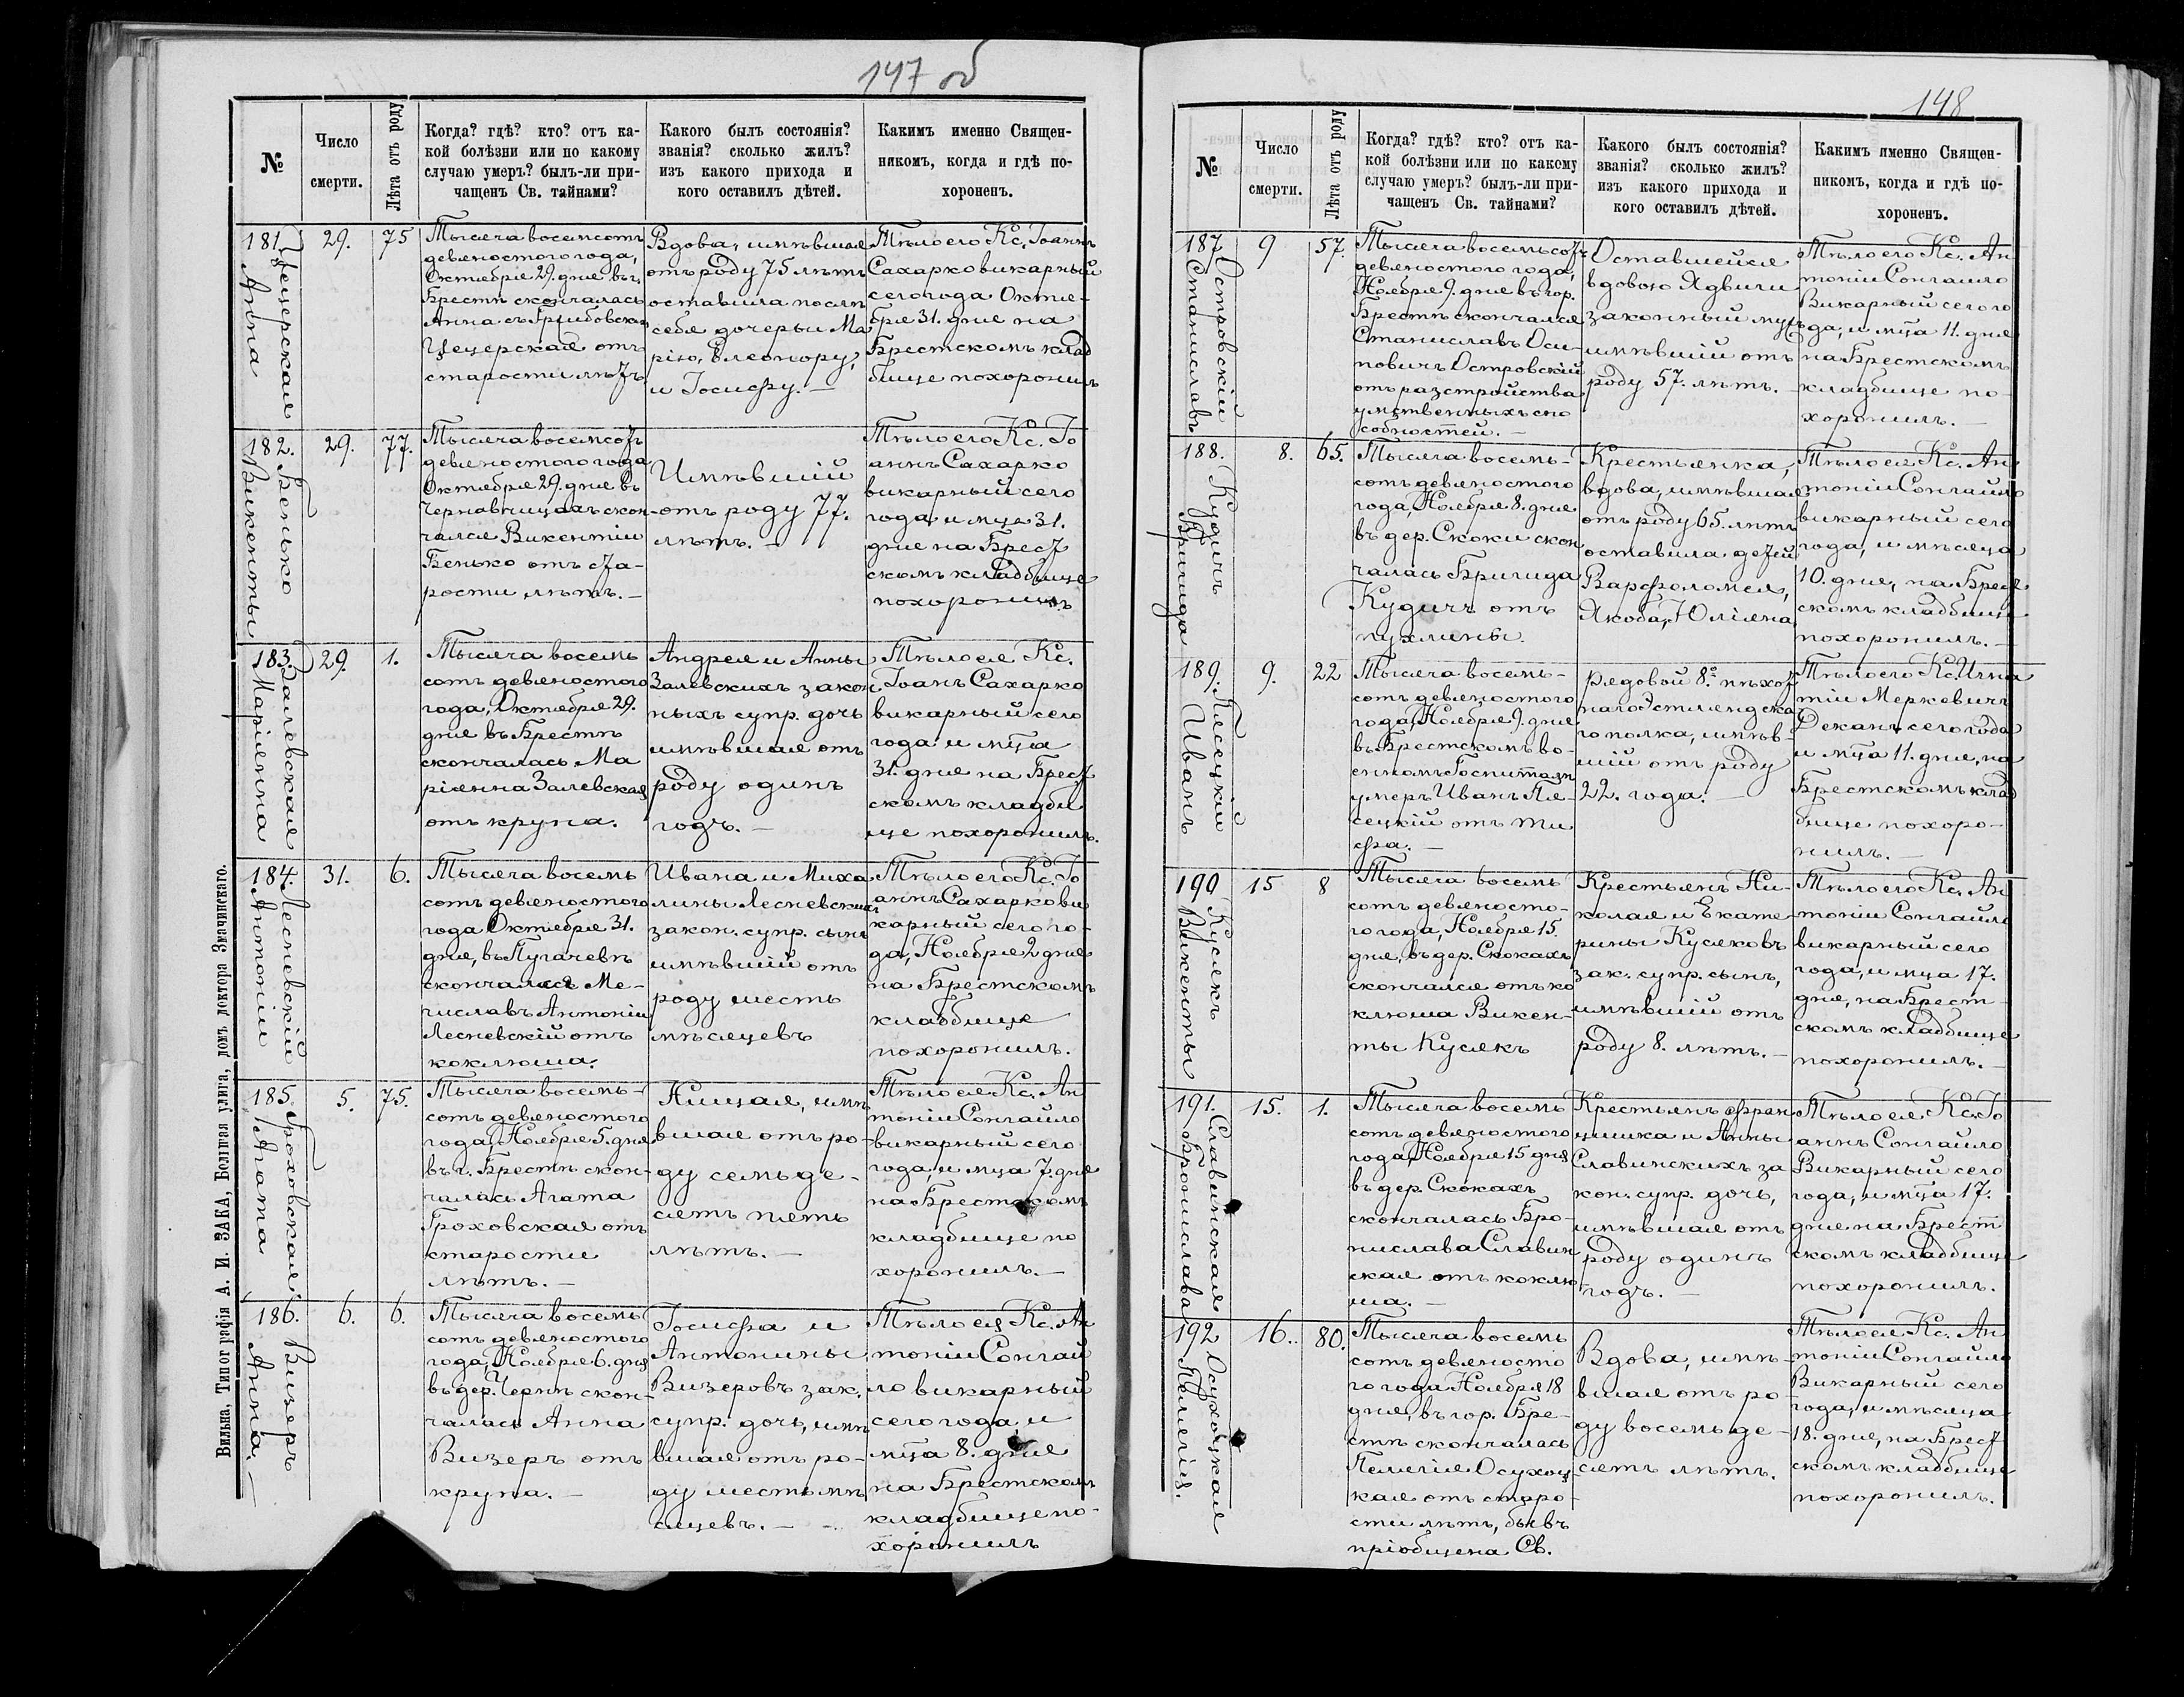 147 об
№
Число
смерти.
Лѣта отъ роду
Когда? гдѣ? кто? отъ ка-
кой болѣзни или по какому
случаю умеръ? былъ-ли при-
чащенъ Св. тайнами?
Какого былъ состоянія?
званія? сколько жилъ?
изъ какого прихода и
кого оставилъ дѣтей.
Какимъ именно Священ-
никомъ, когда и гдѣ по-
хороненъ.
181.
Цецерская
Анна
29.
75
Тысяча восемсотъ
девяностого года,
Октября 29. дня въ г.
Брестѣ скончалась
Анна съ Грибовских
Цецерская отъ
старости лѣтъ
Вдова, имѣвшая
отъ роду 75 лѣтъ
оставила послѣ
себя дочерьи Ма
рію, Элеонору,
и Іосифу. —
Тѣло его Кс. Іоаннъ
Сахарко викарный
сего года Октя-
бря 31. дня на
Брестскомъ клад
бище похоронилъ
182.
Бенько
Викенты
29.
77.
Тысяча восемсотъ
девяностого года
Октября 29. дня въ
Чернавчицахъ скон-
чался Викентіи
Бенько отъ ста-
рости лѣтъ. —
Имѣвшій
отъ роду 77.
лѣтъ. —
Тѣло его Кс. Іо
аннъ Сахарко
викарный сего
года и мца 31.
дня на Брест
скомъ кладбище
похоронилъ
183.
Залевская
Маріянна
29.
1.
Тысяча восемь
сотъ девяностого
года, Октября 29.
дня въ Брестѣ
скончалась Ма
ріянна Залевская
отъ крупа.
Андрея и Анны
Залевскихъ закон
ныхъ супр. дочь
имѣвшая отъ
роду одинъ
годъ. —
Тѣло ея Кс.
Іоанъ Сахарко
викарный сего
года и мца
31. дня на Брест
скомъ кладби
ще похоронилъ.
184.
Лесневскій
Антоніи
31.
6.
Тысяча восемь
сотъ девяностого
года Октября 31.
дня, въ Пугачевѣ
скончался Ме-
числавъ Антоніи
Лесневскій отъ
коклюша.
Ивана и Миха
лины Лесневскихъ
закон. супр. сынъ
имѣвшій отъ
роду шесть
мѣсяцевъ
Тѣло его Кс. Іо
аннъ Сахарко ви
карный сего го-
да, Ноября 2 дня
на Брестскомъ
кладбище
похоронилъ.
185.
Гроховская
Агата
5.
75.
Тысяча восемь-
сотъ девяностого
года, Ноября 5. дня
въ г. Брестѣ скон-
чалась Агата
Гроховская отъ
старости
лѣтъ. —
Нищая, имѣ
вшая отъ ро-
ду семьде-
сять пять
лѣтъ. —
Тѣло ея Кс. Ан
тоніи Сонгайло
викарный сего
года, и мца 7. дня
на Брестскомъ
кладбище по
хоронилъ. —
186.
Визеръ
Анна. —
6.
6.
Тысяча восемь
сотъ девяностого
года, Ноября 6. дня
въ дер. Чернѣ скон-
чалась Анна
Визеръ отъ
крупа. —
Іосифа и
Антонины
Визеровъ зак.
супр. дочь, имѣ
вшая отъ ро-
ду шесть мѣ
сяцевъ. —
Тѣло ея Кс. Ан
тоніи Сонгай
ло викарный
сего года и
мца 8. дня
на Брестскомъ
кладбище по-
хоронилъ
Вильна, Типографія А. И. ЗАКА, Большая улица, домъ доктора Значинскаго.
148
№
Число
смерти.
Лѣта отъ роду
Когда? гдѣ? кто? отъ ка-
кой болѣзни или по какому
случаю умеръ? былъ-ли при-
чащенъ Св. тайнами?
Какого былъ состоянія?
званія? сколько жилъ?
изъ какого прихода и
кого оставилъ дѣтей.
Какимъ именно Священ-
никомъ, когда и гдѣ по-
хороненъ.
187
Островскій
Станиславъ
9
57.
Тысяча восемьсотъ
девяностого года,
Ноября 9. дня въ гор.
Брестѣ скончался
Станиславъ Оси-
повичъ Островскій
отъ разстройства
умственныхъ спо
собностей. —
Оставшейся
вдовою Ядвиги
законный мужъ
имѣвшій отъ
роду 57. лѣтъ. —
Тѣло его Кс. Ан
тоніи Сонгайло
Викарный сего го
да, и мца 11. дня
на Брестскомъ
кладбище по-
хоронилъ. —
188.
Кудичъ
Бригида
8.
65.
Тысяча восемь-
сотъ девяностого
года, Ноября 8. дня
въ дер. Скоки скон
чалась Бригида
Кудичъ отъ
пухлины.
Крестьянка,
вдова, имѣвшая
отъ роду 65. лѣтъ
оставила детей
Варфоломея,
Якоба, Юліяна
Тѣло ея Кс. Ан
тоніи Сонгайло
викарный сего
года, и мѣсяца
10. дня, на Брест
скомъ кладбище
похоронилъ. —
189.
Пясецкій
Иванъ
9.
22
Тысяча восемь-
сотъ девяностого
года, Ноября 9. дня
въ Брестскомъ во-
енномъ Госпиталѣ
умеръ Иванъ Пя-
сецкій отъ ти
фа. —
Рядовой 8.го пѣхот
наго Эстляндска
го полка, имѣв-
шій отъ роду
22. года. —
Тѣло его Кс. Игна
тіи Меркевичъ
Деканъ сего года
и мца 11. дня, на
Брестскомъ клад
бище похоро-
нилъ. —
190
Кусякъ
Викенты
15
8
Тысяча восемь
сотъ девяносто-
го года, Ноября 15.
дня, въ дер. Скокахъ
скончался отъ ко
клюша Викен-
ты Кусякъ
Крестьянъ Ни-
колая и Екате-
рины Кусяковъ
зак. супр. сынъ,
имѣвшій отъ
роду 8. лѣтъ. —
Тѣло его Кс. Ан
тоніи Сонгайло
викарный сего
года, и мца 17.
дня, на Брест-
скомъ кладбище
похоронилъ. —
191.
Славинская
Бронислава
15.
1.
Тысяча восемь
сотъ девяностого
года, Ноября 15 дня
въ дер. Скокахъ
скончалась Бро-
нислава Славин
ская отъ коклю
ша. —
Крестьянъ Фран
цишка и Анны
Славинскихъ за
кон. супр. дочь,
имѣвшая отъ
роду одинъ
годъ. —
Тѣло ея Кс. Іо
аннъ Сонгайло
Викарный сего
года, и мца 17.
дня на Брест
скомъ кладбище
похоронилъ.
192
Осухоцкая
Пелегія.
16..
80.
Тысяча восемь
сотъ девяносто
го года Ноября 18
дня, въ гор. Бре-
стѣ скончалась
Пелегія Осухоц-
кая отъ старо-
сти лѣтъ, бывъ
пріобщена Св.
Вдова, имѣ-
вшая отъ ро
ду восемьде-
сять лѣтъ.
Тѣло ея Кс. Ан
тоніи Сонгайло
Викарный сего
года, и мѣсяца
18. дня, на Брест
скомъ кладбище
похоронилъ.